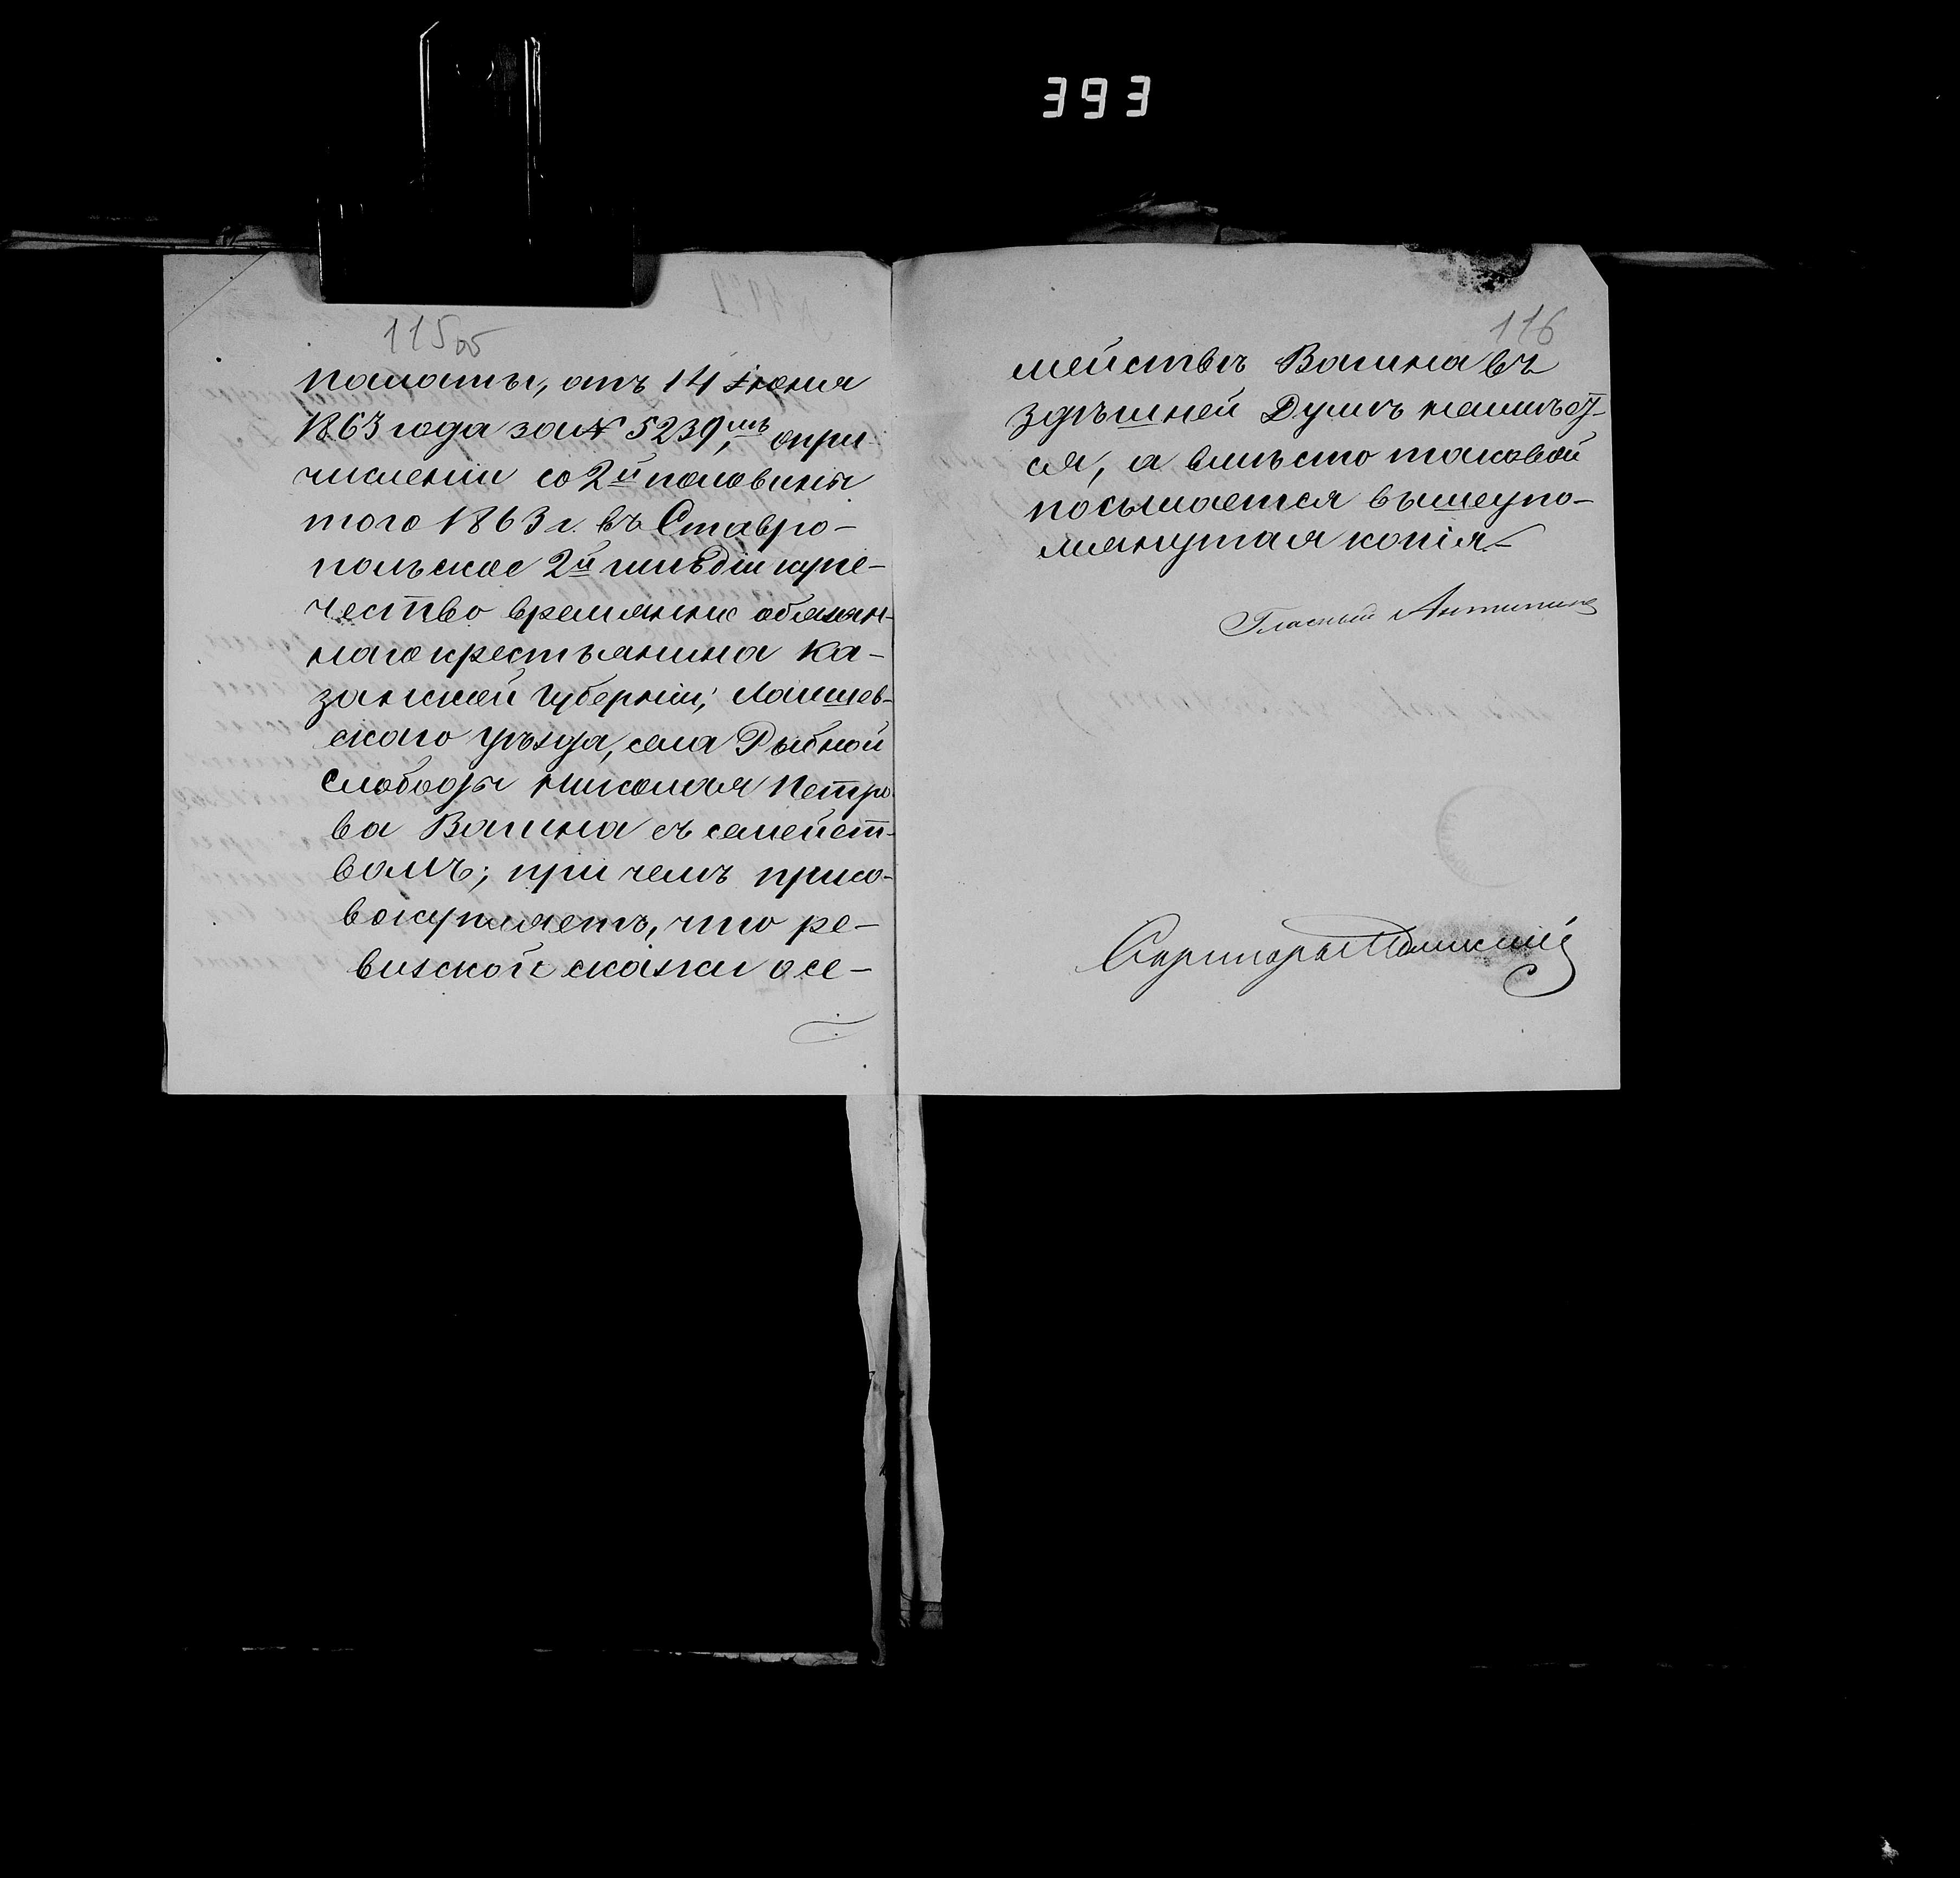 393
115 об
палаты, отъ 14 Іюня
1863 года за № 5239,мъ опри
численіи со 2й половины
того 1863 г. въ Ставро-
польское 2й гильдіи купе-
чество временно обязан-
наго крестьянина Ка-
занской Губерніи, Лаишев-
скаго уѣзда, села Рыбной
Слободы Николая Петро
ва Вагина съ семейст-
вомъ; при чемъ присо-
вокупляетъ, что ре-
визской сказки о се-
116
мействѣ Вагина въ
здѣшней Думѣ не имѣет-
ся, а вмѣсто таковой
посылается вышеупо-
мянутая копія.
Гласный Антипинъ
Секретарь